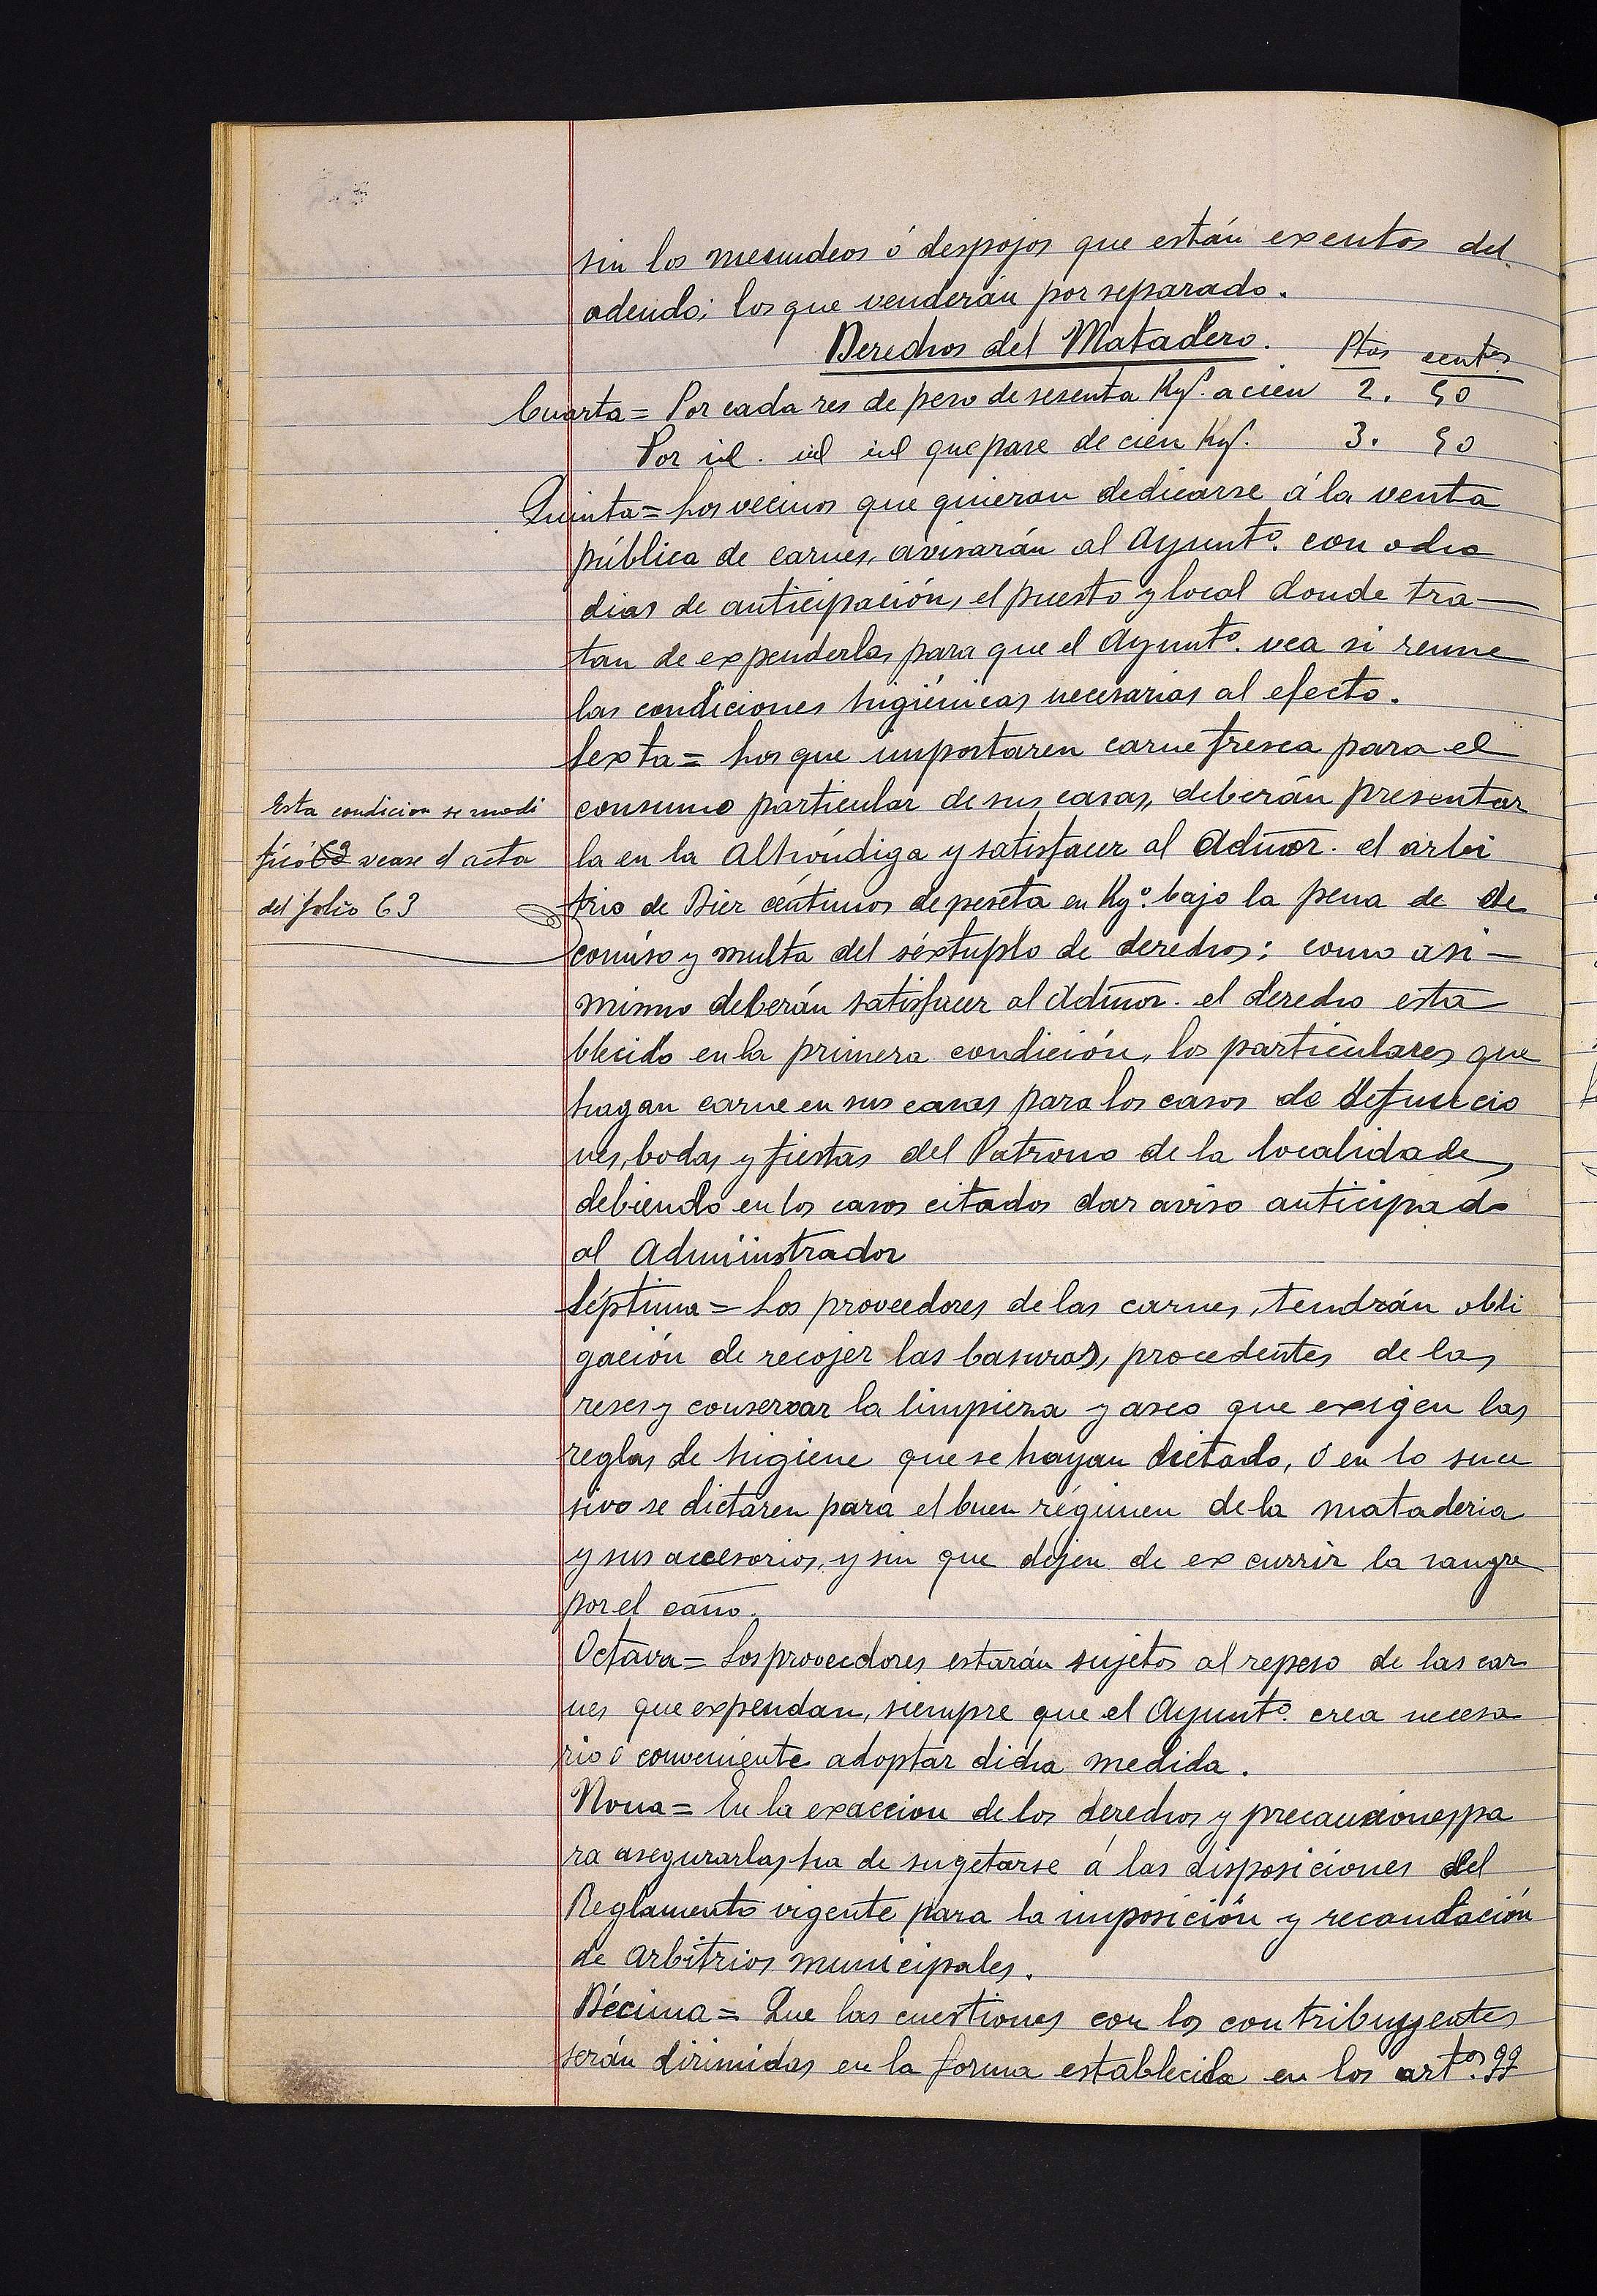 sin los menudos ó despojos que están exentos del
adeudo; los que venderán por separado.
Derechos del Matadero. Ptas cents
Cuarta = Por cada res de peso de sesenta Kgs. a cien 2. 50
Por id. id id que pase de cien Kgs. 3. 50
Quinta = Los vecinos que quieran dedicarse á la venta
pública de carnes, avisarán al Ayunto. con ocho
dias de anticipación, el puesto y local donde tra-
tan de expenderlas, para que el Ayunto. vea si reune
las condiciones higiénicas necesarias al efecto.
Sexta = Los que importaren carne fresca para el
consumo particular de sus casas, deberán presentar
la en la Alhóndiga y satisfacer al Admor. el arbi
trio de Diez céntimos de peseta en Kgo. bajo la pena de de
comiso y multa del séxtuplo de derechos: como asi-
mismo deberán satisfacer al Admor. el derecho esta
blecido en la primera condición, los particulares que
hagan carne en sus casas para los casos de defuncio
nes, bodas y fiestas del Patrono de la localidade,
debiendo en los casos citados dar aviso anticipado
al Administrador
Séptima = Los proveedores de las carnes, tendrán obli
gación de recojer las basuras, procedentes de las
reses y conservar la limpieza y aseo que exigen las
reglas de higiene que se hayan dictado, ó en lo suce
sivo se dictaren para el buen régimen de la mataderia
y sus accesorios, y sin que dejen de excurrir la sangre
por el caño.
Octava = Los proveedores estarán sujetos al repeso de las car
nes que expendan, siempre que el Ayunto. crea necesa
rio ó conveniente adoptar dicha medida.
Nona = En la exaccion de los derechos y precauciones pa
ra asegurarlas, ha de sugetarse á las disposiciones del
Reglamento vigente para la imposición y recaudación
de arbitrios municipales.
Décima = Que las cuestiones con los contribuyentes
serán dirimidas en la forma establecida en los artos. 99
Esta condicion se modi
ficó vease el acta
del folio 63